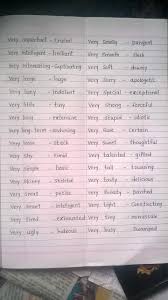 Very important - crucial
Very intelligent - brilliant
Very interesting - captivating
Very large - huge
Very lazy - indolent
Very little - tiny
Very long - extensive
Very long-term - enduring
Very loose - slack
Very shy - timid
Very simple - basic
Very skinny - skeletal
Very small - petite
Very smart - intelligent
Very tired - exhausted
Very ugly - hideous
Very smelly - pungent
Very smooth - sleek
Very soft - downy
Very sorry - apologetic
Very special - exceptional
Very strong - forceful
Very stupid - idiotic
Very sure - certain
Very sweet - thoughtful
Very talented - gifted
Very tall - towering
Very tasty - delicious
Very thirsty - parched
Very tight - constricting
Very tiny - minuscule
Very busy - swamped